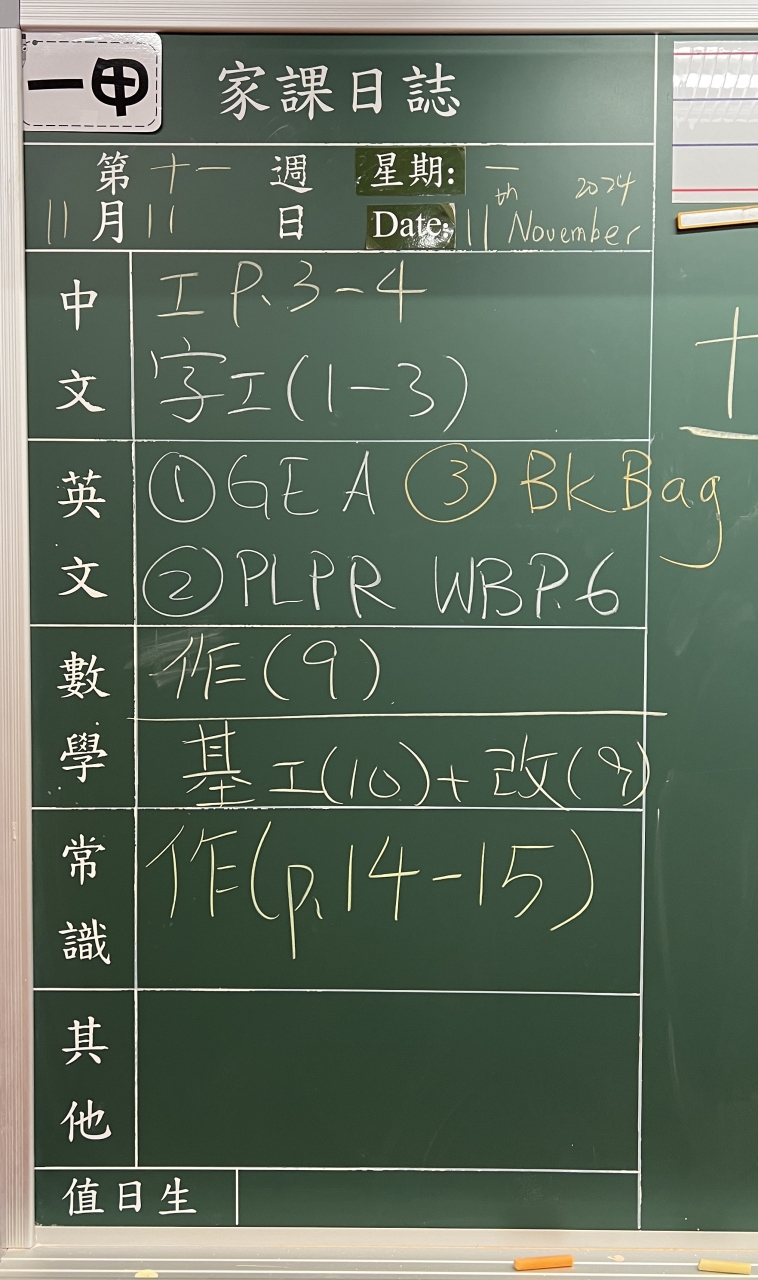 一甲
家課日誌
第十一週 星期: 一
11月11日 Date: 11th November 2024
中文
工 P.3-4
字工(1-3)
英文
①GE A ③BK Bag
②PLPR WBP.6
數學
作(9)
基工(10)+改(9)
常識
作(p.14-15)
其他
值日生